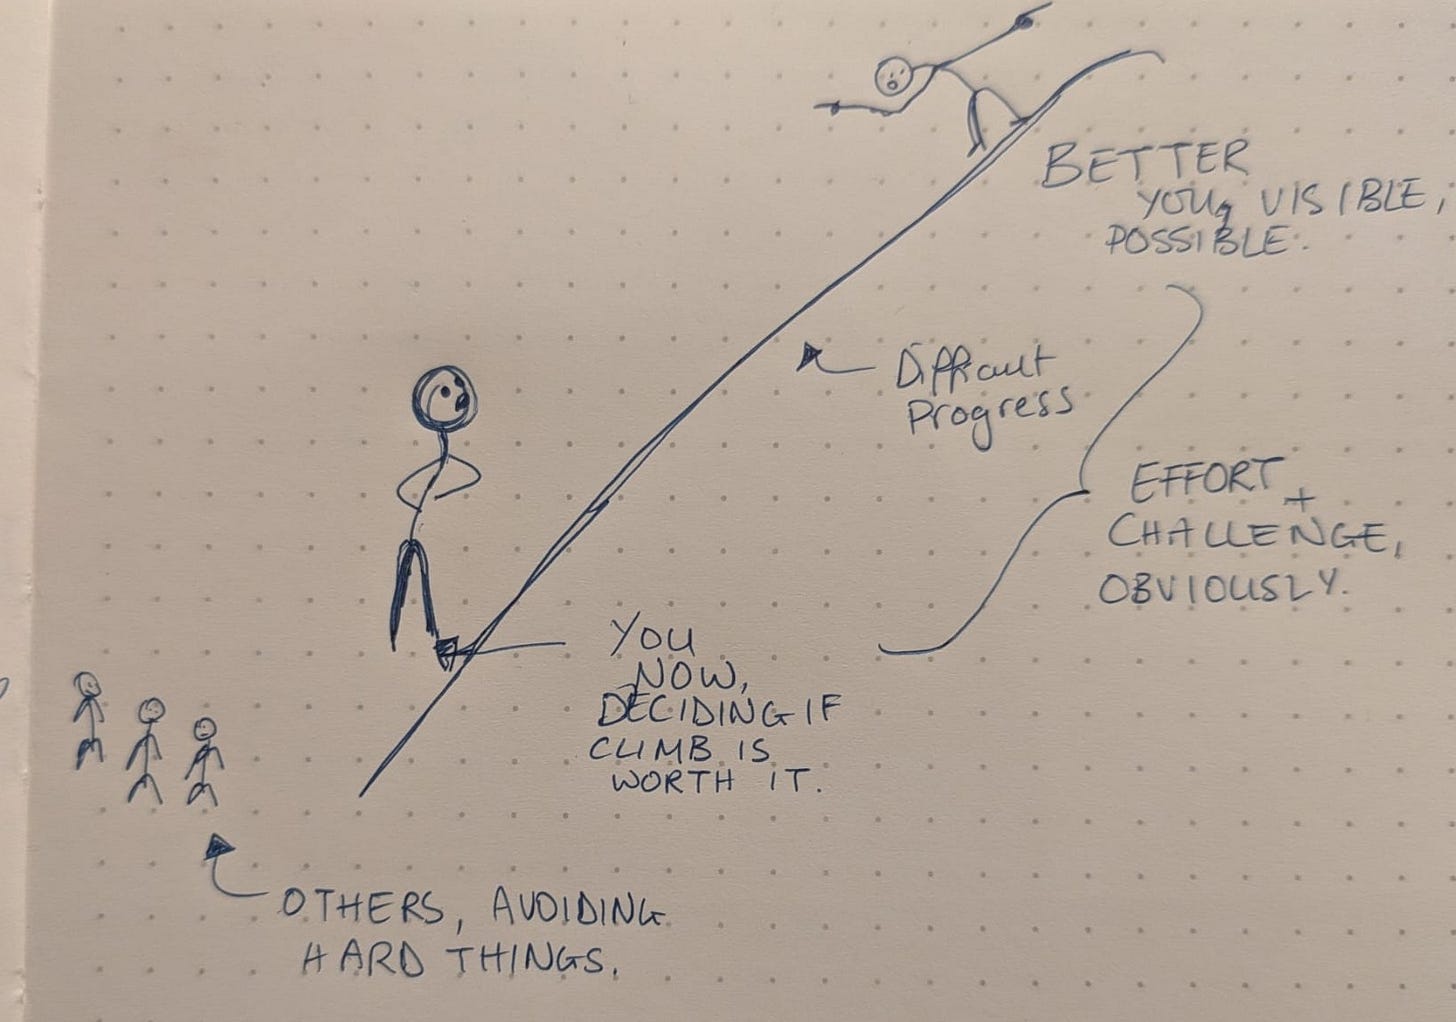 BETTER
YOU, VISIBLE,
POSSIBLE.
Difficult
Progress
EFFORT +
CHALLENGE,
OBVIOUSLY.
YOU
NOW,
DECIDING IF
CLIMB IS
WORTH IT.
OTHERS, AVOIDING
HARD THINGS.